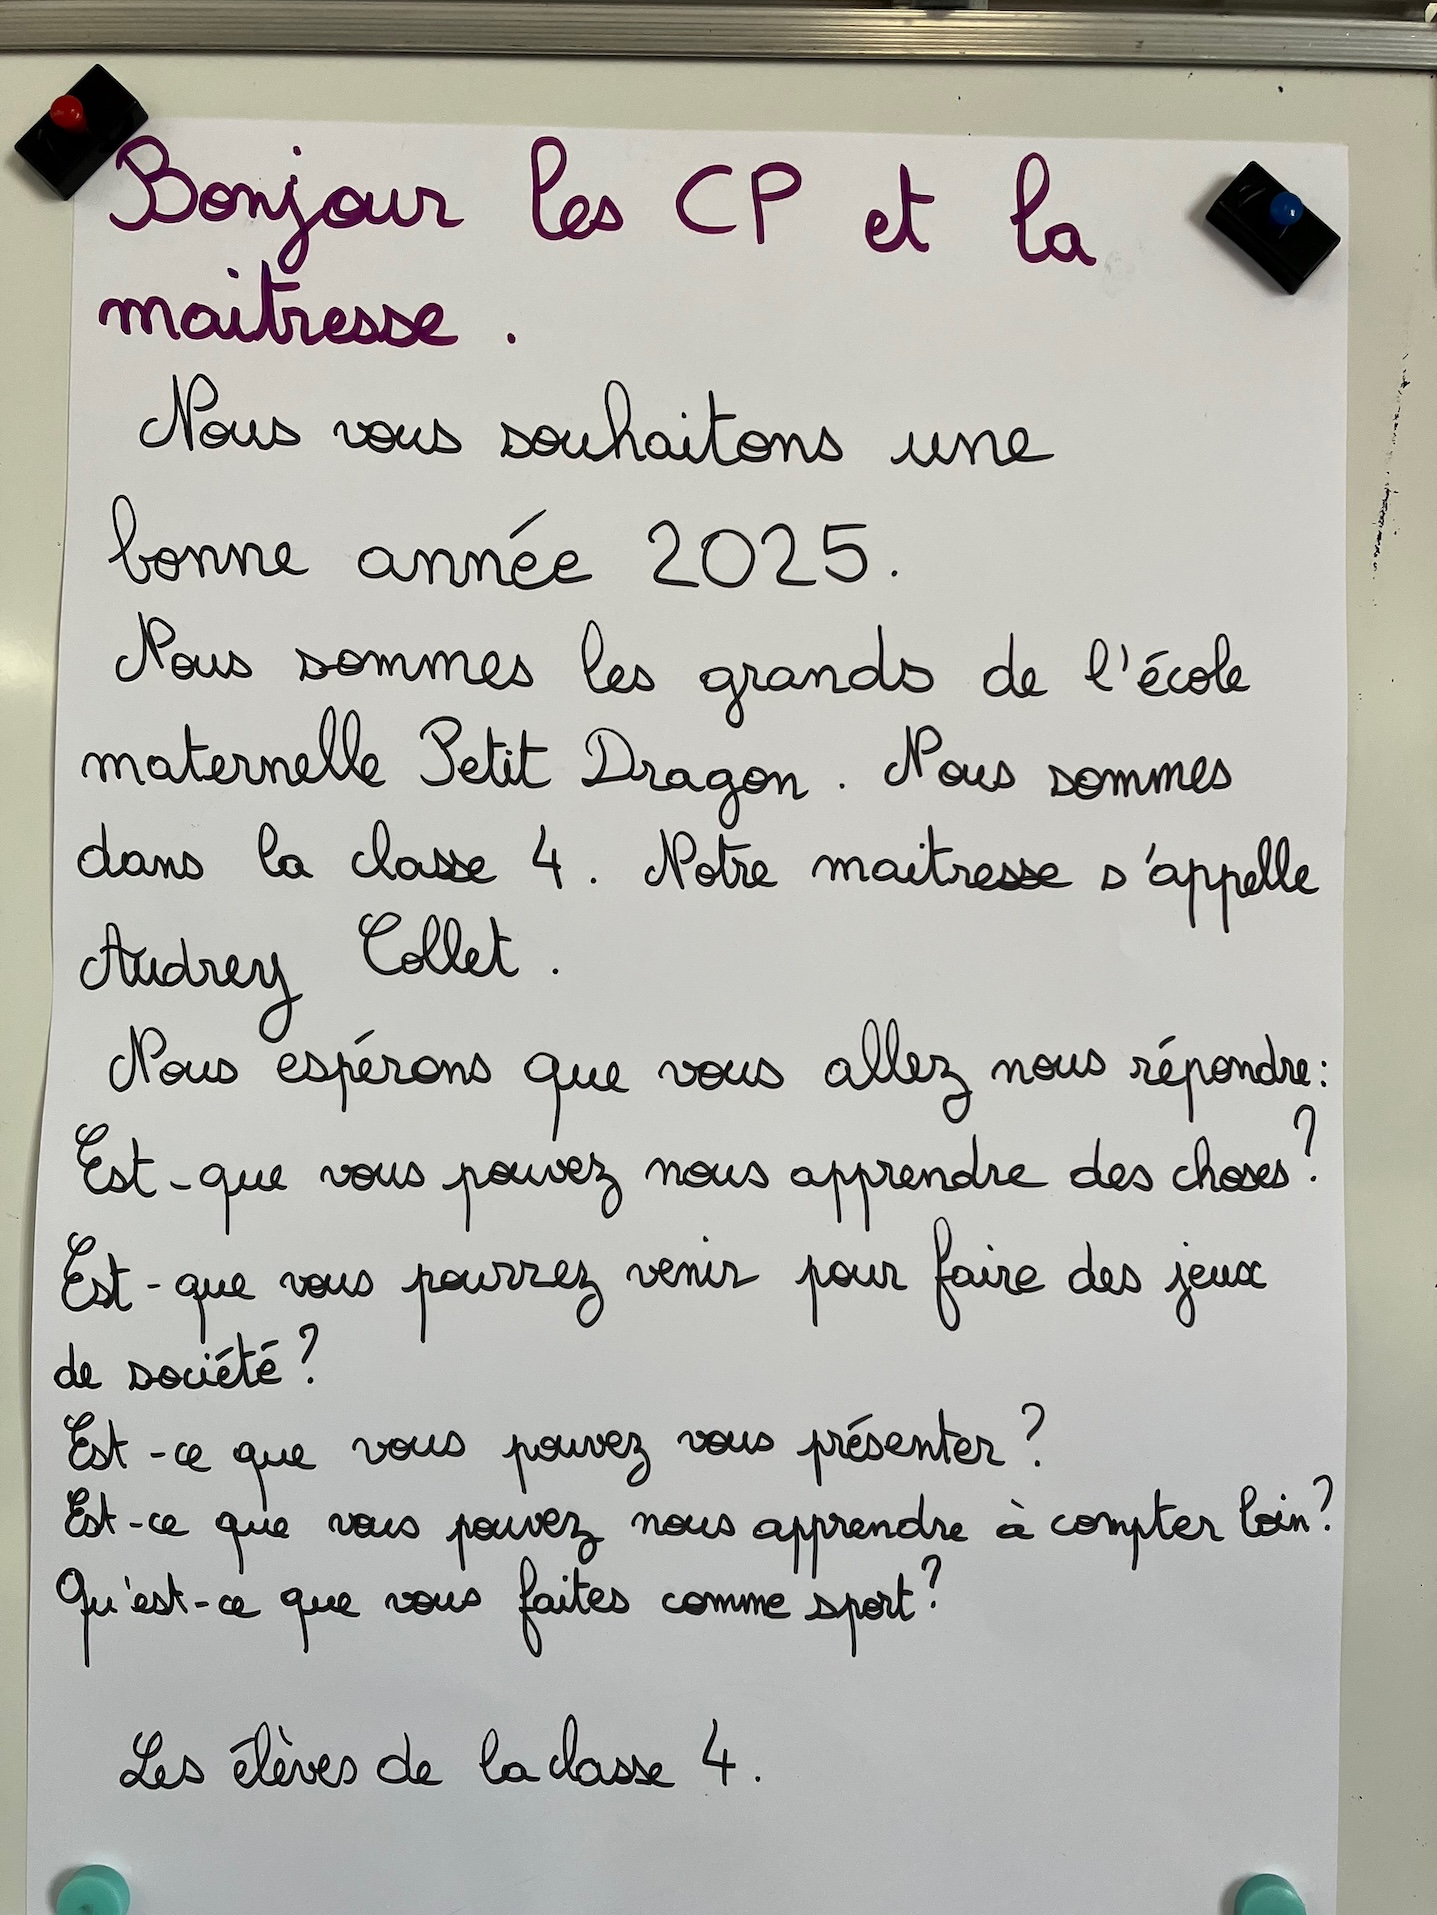 Bonjour les CP et la
maitresse.
Nous vous souhaitons une
bonne année 2025.
Nous sommes les grands de l'école
maternelle Petit Dragon. Nous sommes
dans la classe 4. Notre maitresse s'appelle
Audrey Collet.
Nous espérons que vous allez nous répondre:
Est-que vous pouvez nous apprendre des choses?
Est-que vous pourrez venir pour faire des jeux
de société?
Est-ce que vous pouvez vous présenter?
Est-ce que vous pouvez nous apprendre à compter loin?
Qu'est-ce que vous faites comme sport?
Les élèves de la classe 4.